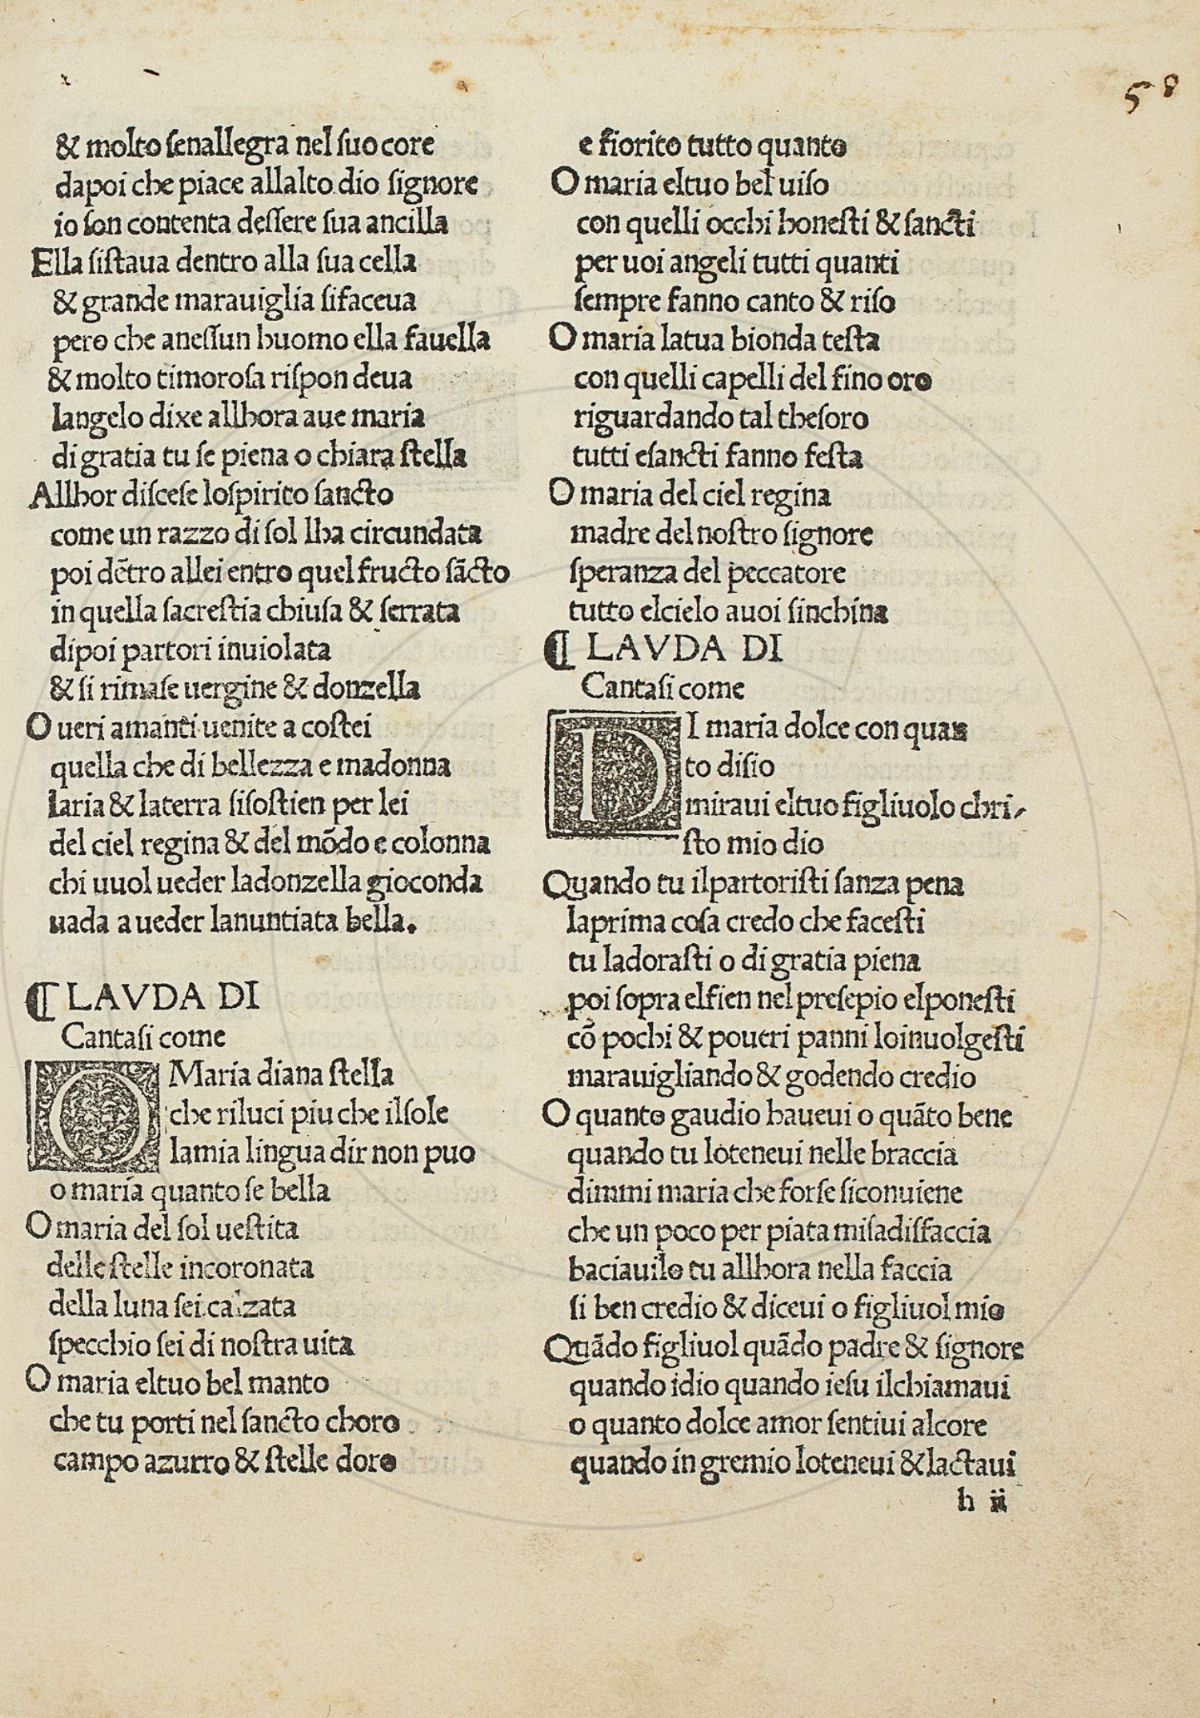 58
& molto senallegra nel suo core
dapoi che piace allalto dio signore
io son contenta dessere sua ancilla
Ella sistaua dentro alla sua cella
& grande marauiglia sifaceua
pero che anessun huomo ella fauella
& molto timorosa rispon deua
langelo dixe allhora aue maria
di gratia tu se piena o chiara stella
Allhor discese lospirito sancto
come un razzo di sol lha circundata
poi dẽtro allei entro quel fructo sãcto
in quella sacrestia chiusa & serrata
dipoi partori inuiolata
& si rimase uergine & donzella
O ueri amanti uenite a costei
quella che di bellezza e madonna
laria & laterra sisostien per lei
del ciel regina & del mõdo e colonna
chi uuol ueder ladonzella gioconda
uada a ueder lanuntiata bella.
¶ LAVDA DI
Cantasi come
O Maria diana stella
che riluci piu che ilsole
lamia lingua dir non puo
o maria quanto se bella
O maria del sol uestita
delle stelle incoronata
della luna sei calzata
specchio sei di nostra uita
O maria eltuo bel manto
che tu porti nel sancto choro
campo azurro & stelle doro
e fiorito tutto quanto
O maria eltuo bel uiso
con quelli occhi honesti & sancti
per uoi angeli tutti quanti
sempre fanno canto & riso
O maria latua bionda testa
con quelli capelli del fino oro
riguardando tal thesoro
tutti esancti fanno festa
O maria del ciel regina
madre del nostro signore
speranza del peccatore
tutto elcielo auoi sinchina
¶ LAVDA DI
Cantasi come
DI maria dolce con quan
to disio
miraui eltuo figliuolo chri-
sto mio dio
Quando tu ilpartoristi sanza pena
laprima cosa credo che facesti
tu ladorasti o di gratia piena
poi sopra elfien nel presepio elponesti
cõ pochi & poueri panni loinuolgesti
marauigliando & godendo credio
O quanto gaudio haueui o quãto bene
quando tu loteneui nelle braccia
dimmi maria che forse siconuiene
che un poco per piata misadisfaccia
baciauilo tu allhora nella faccia
si ben credio & diceui o figliuol mio
Quãdo figliuol quãdo padre & signore
quando idio quando iesu ilchiamaui
o quanto dolce amor sentiui alcore
quando in gremio loteneui & lactaui
h ii